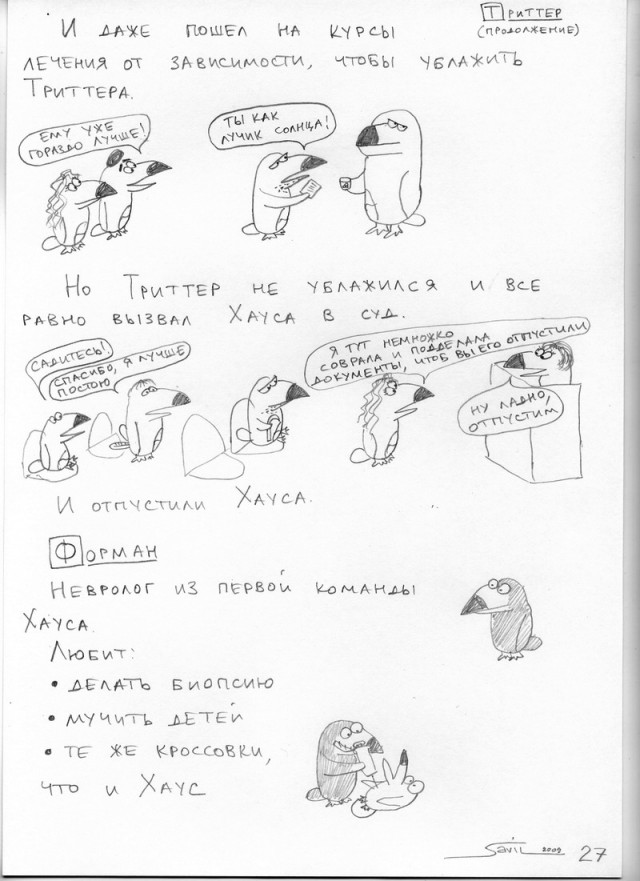 Триттер
(продолжение)
И даже пошел на курсы
лечения от зависимости, чтобы ублажить
Триттера.
Ему уже
гораздо лучше!
Ты как
лучик солнца!
Но Триттер не ублажился и все
равно вызвал Хауса в суд.
Садитесь!
Спасибо, я лучше
постою
Я тут немножко
соврала и подделала
документы, чтоб вы его отпустили
Ну ладно,
отпустим
И отпустили Хауса.
Форман
Невролог из первой команды
Хауса.
Любит:
• делать биопсию
• мучить детей
• те же кроссовки,
что и Хаус
Savil 2009
27